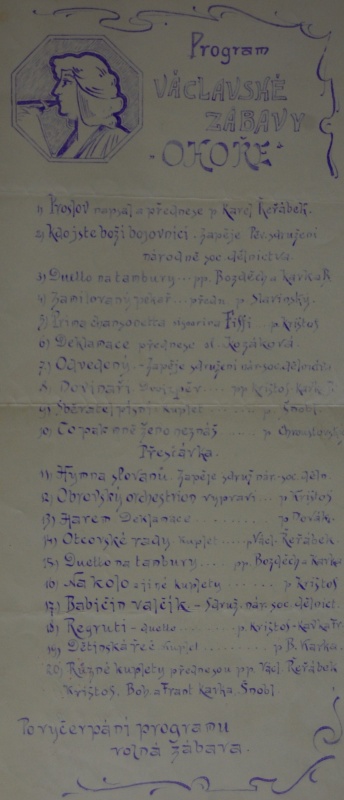 Program
VÁCLAVSKÉ
ZÁBAVY
"OKOŘE"
1) Proslov napsal a přednese p. Karel Řeřábek.
2) Kdo jste boží bojovníci. Zapěje Pěv. sdružení
národně soc. dělnictva.
3) Duetto na tambury... pp. Bozděch a Karka B.
4) Zamilovaný pekař... předn. p. Slavinský.
5) Prima chansonetta signorina Fiffi... p. Křištos
6) Deklamace přednese sl. Kozáková.
7) Odvedený. - Zapěje sdružení nár. soc. dělnictva
8) Dovináři pp. Křištos
9) Sběratel písní - kuplet... p. Šnobl.
10) Co pak mně ženo neznáš... p.
Přestávka.
11) Hymna slovanů. Zapěje sdruž. nár. soc. děln.
12) Obrovský orchestrion vypraví... p. Křištos
13) Harem Deklamace........ p. Novák.
14) Otcovské rady kuplet..... p. Václ. Řeřábek.
15) Duetto na tambury...... pp. Bozděch a Karka
16) Na kolo a jiné kuplety..... p. Křištos
17) Babiččin valčík - Sdruž. nár. soc. dělnict.
18) Regruti - duetto...... p. Křištos-Karka Fr.
19) Dětinská řeč kuplet....... p. B. Karka.
20) Různé kuplety přednesou pp. Václ. Řeřábek
Křištos, Boh. a Frant Karka, Šnobl.
Po vyčerpání programu
volná zábava.